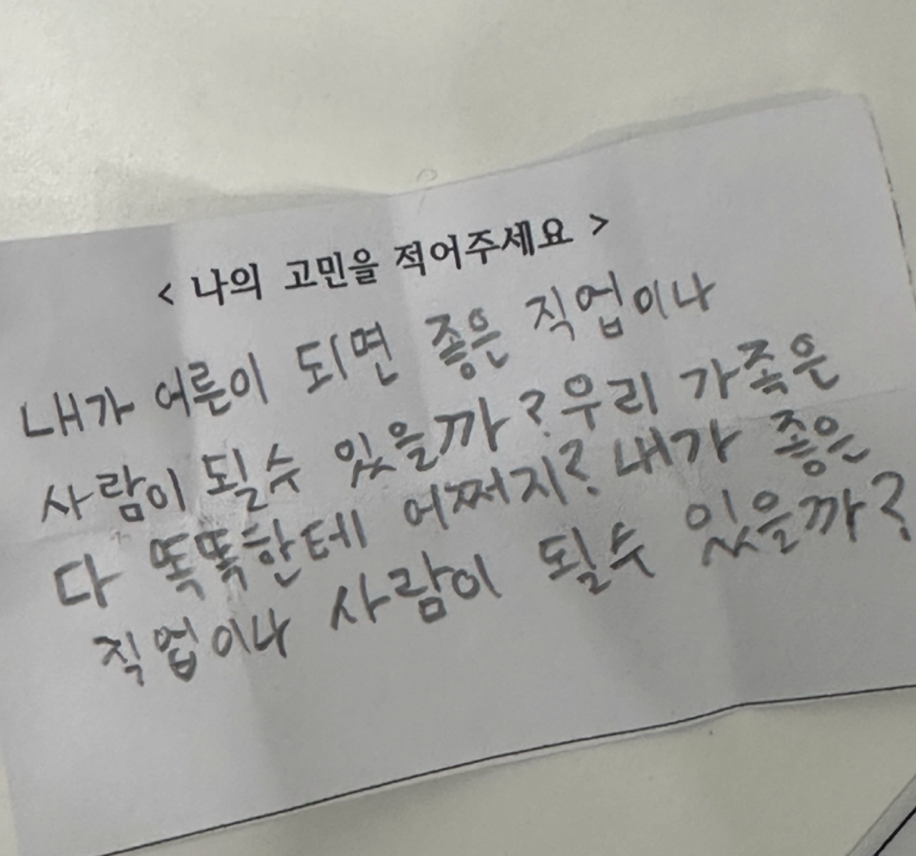 < 나의 고민을 적어주세요 >
내가 어른이 되면 좋은 직업이나
사람이 될수 있을까? 우리 가족은
다 똑똑한데 어쩌지? 내가 좋은
직업이나 사람이 될수 있을까?